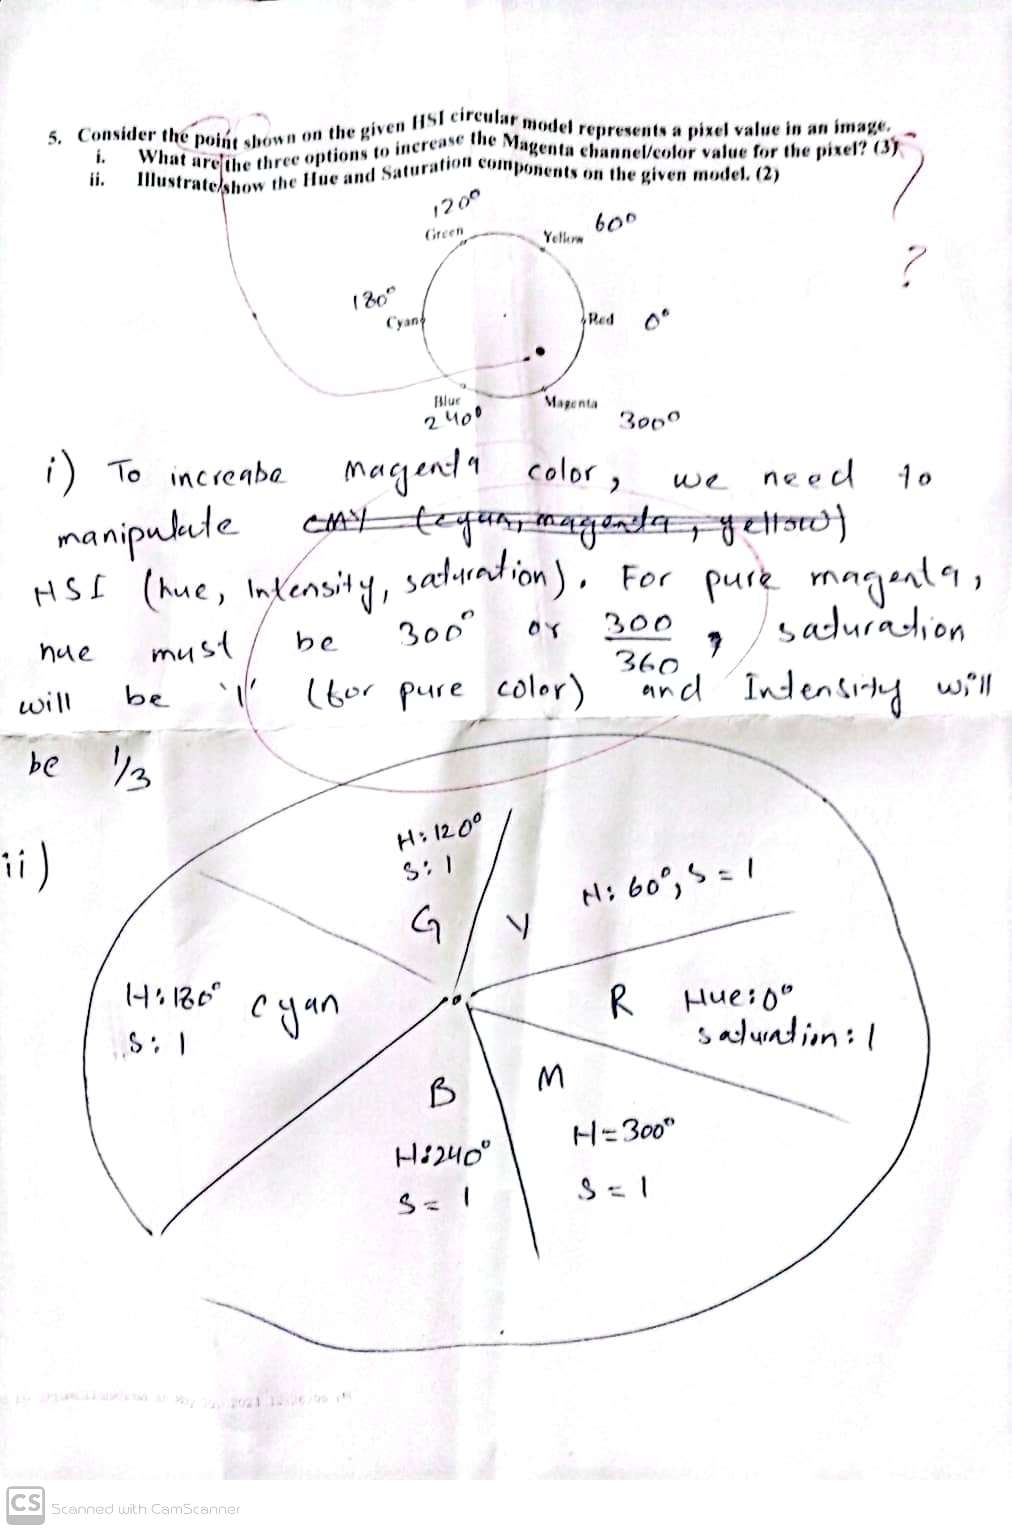 5. Consider the point shown on the given HSI circular model represents a pixel value in an image.
i. What are the three options to increase the Magenta channel/color value for the pixel? (3)
ii. Illustrate/show the Hue and Saturation components on the given model. (2)
?
120°
Green
Yellow 60°
180°
Cyan
Red 0°
Blue
240°
Magenta
300°
i) To increabe magenta color, we need to
manipulate CMY (cyan, magenta, yellow)
HSI (hue, Intensity, saturation). For pure magenta,
hue must be 300° or 300/360, saturation
will be '1' (for pure color) and Intensity will
be 1/3
ii)
H: 120°
S: 1
G
Y
H: 60°, S = 1
H: 180° cyan
S: 1
R Hue: 0°
saturation: 1
B
H: 240°
S = 1
M
H = 300°
S = 1
CS Scanned with CamScanner